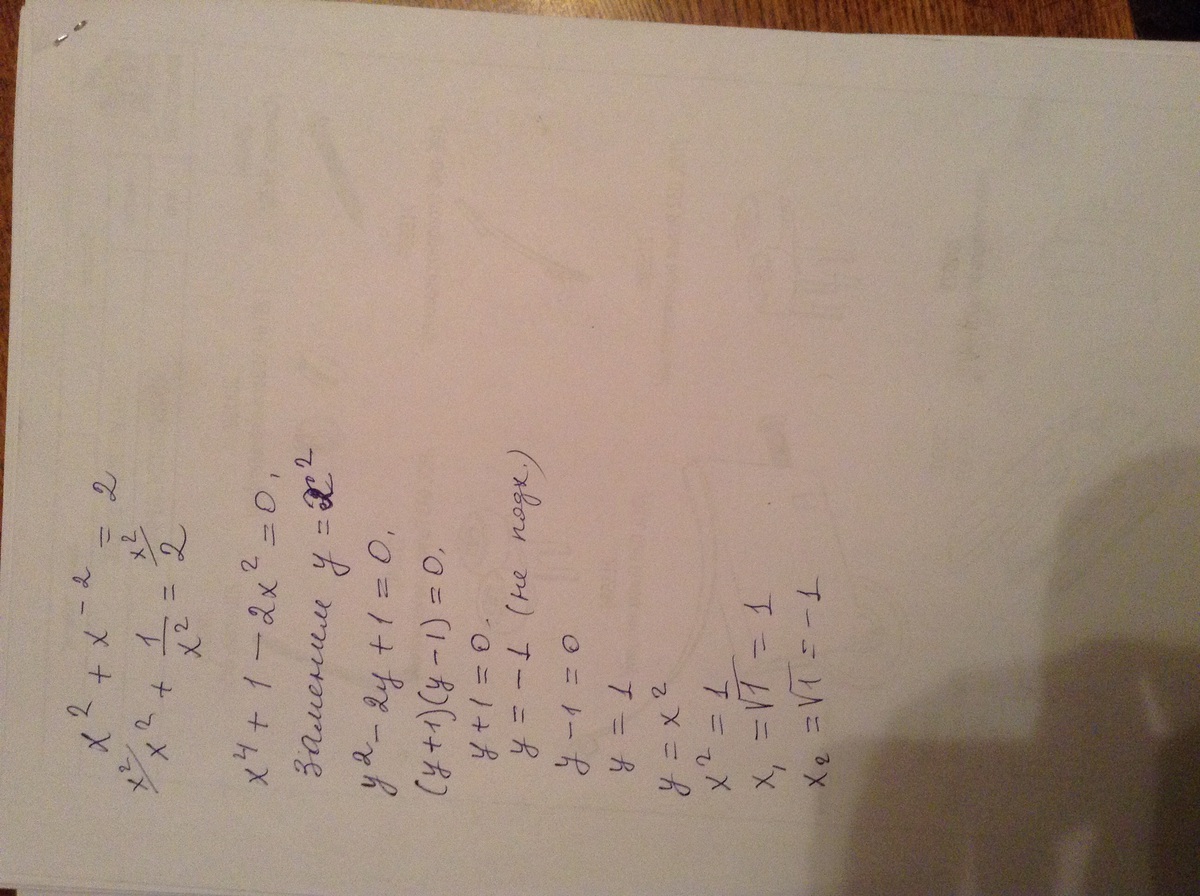 x² + x⁻² = 2
x²/ x² + 1/x² = 2 x²/
x⁴ + 1 - 2x² = 0,
Заменим y = x²
y² - 2y + 1 = 0,
(y+1)(y-1) = 0,
y + 1 = 0,
y = -1 (не подх.)
y - 1 = 0
y = 1
y = x²
x² = 1
x₁ = √1 = 1
x₂ = √1 = -1